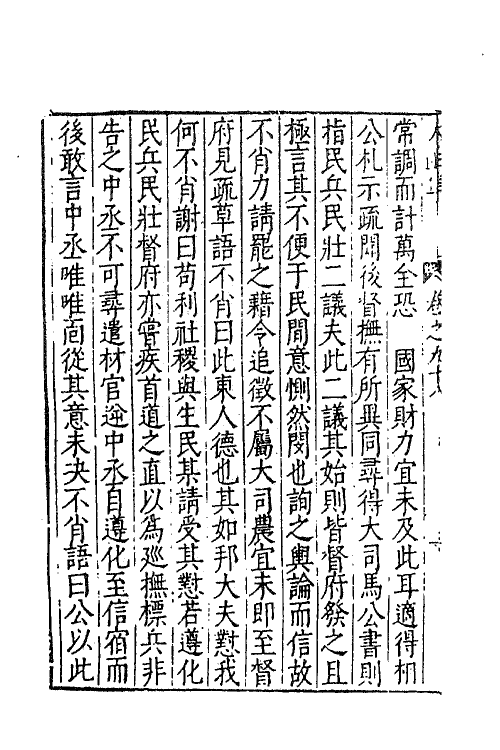 卷之九十八
常調而計萬全恐　國家財力宜未及此耳適得相
公札示疏聞後督撫有所異同尋得大司馬公書則
指民兵民壯二議夫此二議其始則皆督府發之且
極言其不便于民間意惻然閔也詢之輿論而信故
不肖力請罷之藉令追徵不屬大司農宜未即至督
府見疏草語不肖曰此東人德也其如邦大夫懟我
何不肖謝曰苟利社稷與生民某請受其懟若遵化
民兵民壯督府亦嘗疾首道之直以爲巡撫標兵非
告之中丞不可尋遣材官逆中丞自遵化至信宿而
後敢言中丞唯唯卮從其意未決不肖語曰公以此